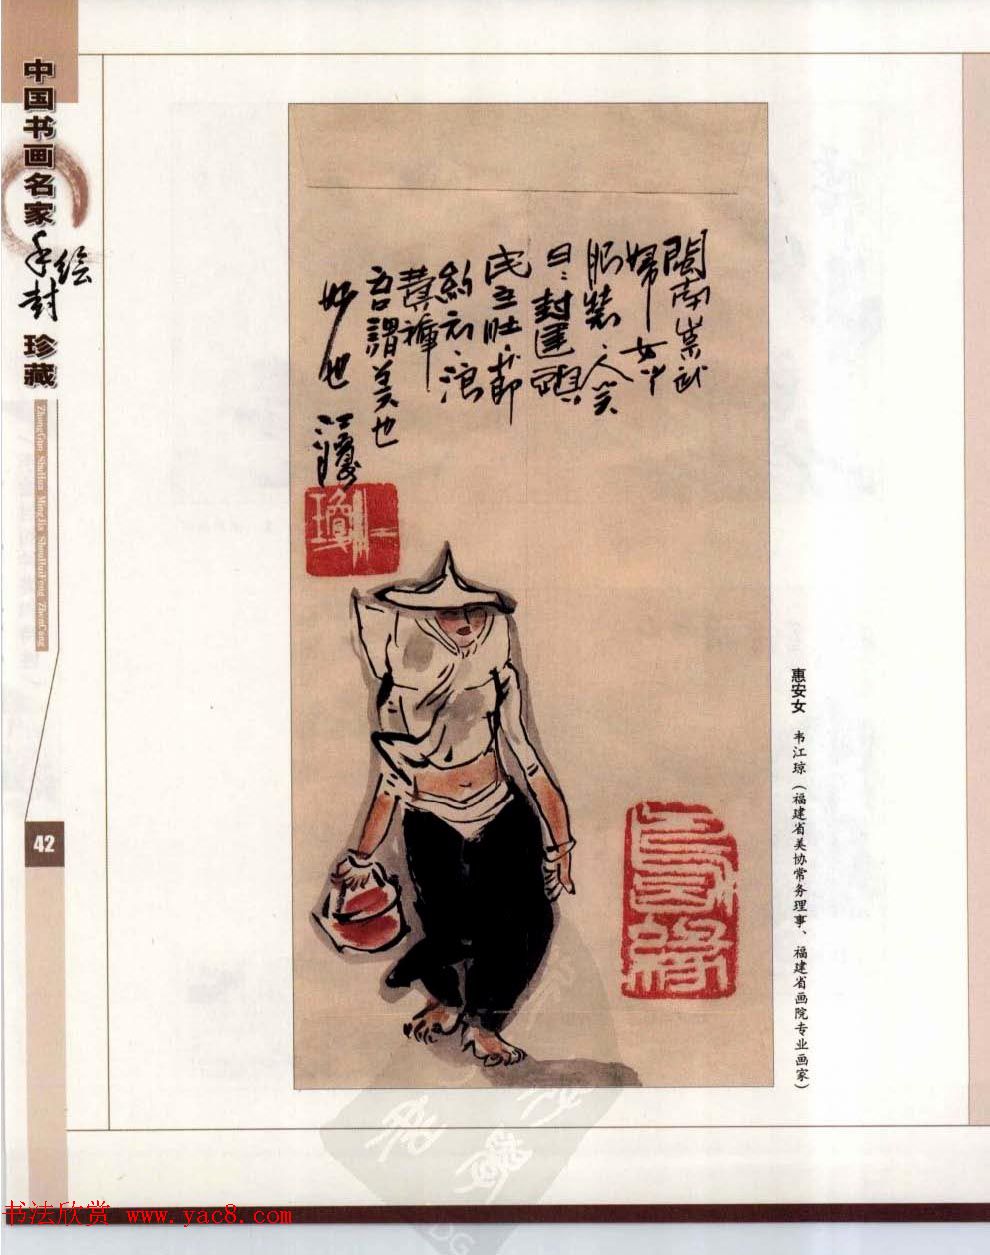 中国书画名家手绘封珍藏
ZhongGuo ShuHua MingJia ShouHuiFeng ZhenCang
42
閩南崇武
婦女
服裝、人笑
曰:封建頭
民主肚、節
約衣、浪
費褲
吾謂美也
妙也 江瓊
惠安女 韦江琼（福建省美协常务理事、福建省画院专业画家）
书法欣赏 www.yac8.com